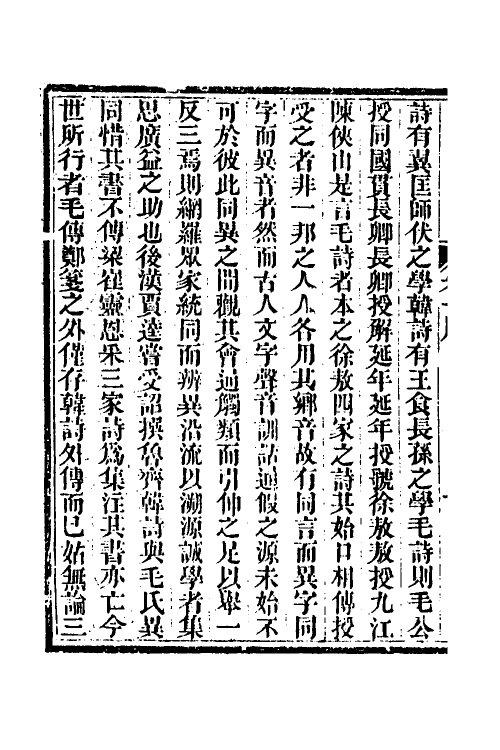 詩有翼匡師伏之學韓詩有王食長孫之學毛詩則毛公
授同國貫長卿長卿授解延年延年授虢徐敖敖授九江
陳俠由是言毛詩者本之徐敖四家之詩其始口相傳授
受之者非一邦之人人各用其鄉音故有同言而異字同
字而異音者然而古人文字聲音訓詁通假之源未始不
可於彼此同異之間觀其會通觸類而引伸之足以舉一
反三焉則網羅眾家統同而辨異沿流以溯源誠學者集
思廣益之助也後漢賈逵嘗受詔撰魯齊韓詩與毛氏異
同惜其書不傳梁崔靈恩采三家詩為集注其書亦亡今
世所行者毛傳鄭箋之外僅存韓詩外傳而已姑無論三